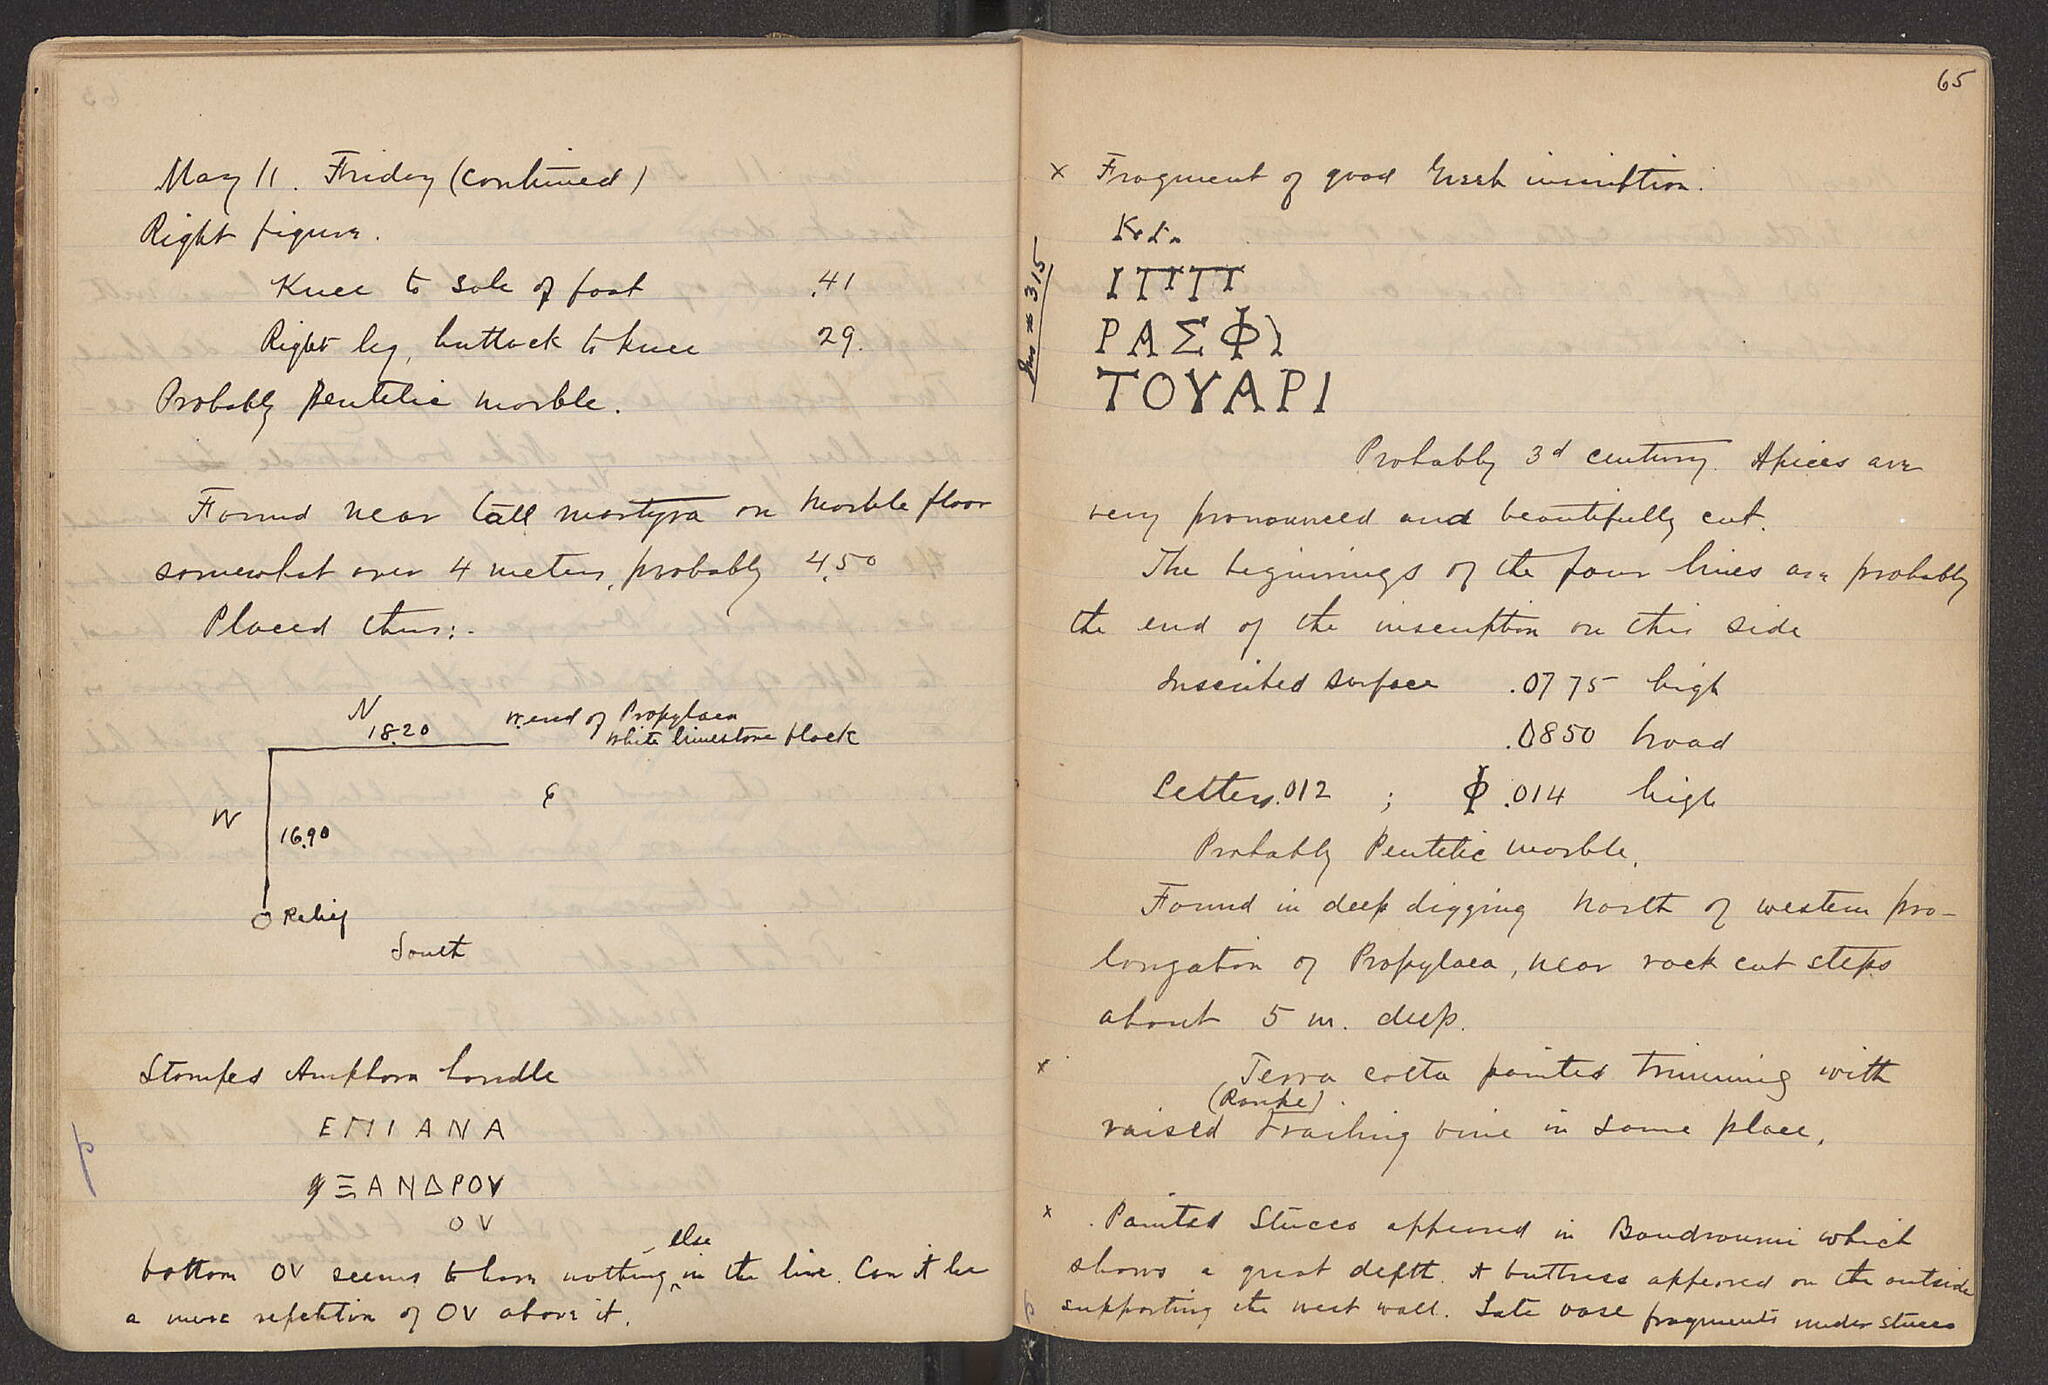 May 11. Friday (continued)
Right figure.
Knee to sole of foot .41
Right leg, buttock to knee 29.
Probably Pentelic marble.
Found near tall martyra on marble floor
somewhat over 4 meters, probably 4.50
Placed thus:-
N
18.20
w. end of Propylaea
white limestone block
W
E
16.90
Relief
South
Stamped Amphora handle
ΕΠΙΑΝΑ
ΞΑΝΔΡΟV
OV
else
bottom OV seems to have nothing in the line. Can it be
a mere repetition of OV above it.
p
65
x Fragment of good Greek inscription.
Inv 315
ΡΑΣΦ
ΤΟΥΑΡΙ
Probably 3d century. Apices are
very pronounced and beautifully cut.
The beginnings of the four lines are probably
the end of the inscription on this side
Inscribed surface .0775 high
.0850 broad
Letters .012 ; Φ .014 high
Probably Pentelic marble.
Found in deep digging North of western pro-
longation of Propylaea, near rock cut steps
about 5 m. deep.
x Terra cotta painted trimming with
(Ranke)
raised trailing vine in same place.
x Painted Stucco appeared in Boudroumi which
shows a great depth. A buttress appeared on the outside
supporting the west wall. Late vase fragments under stucco